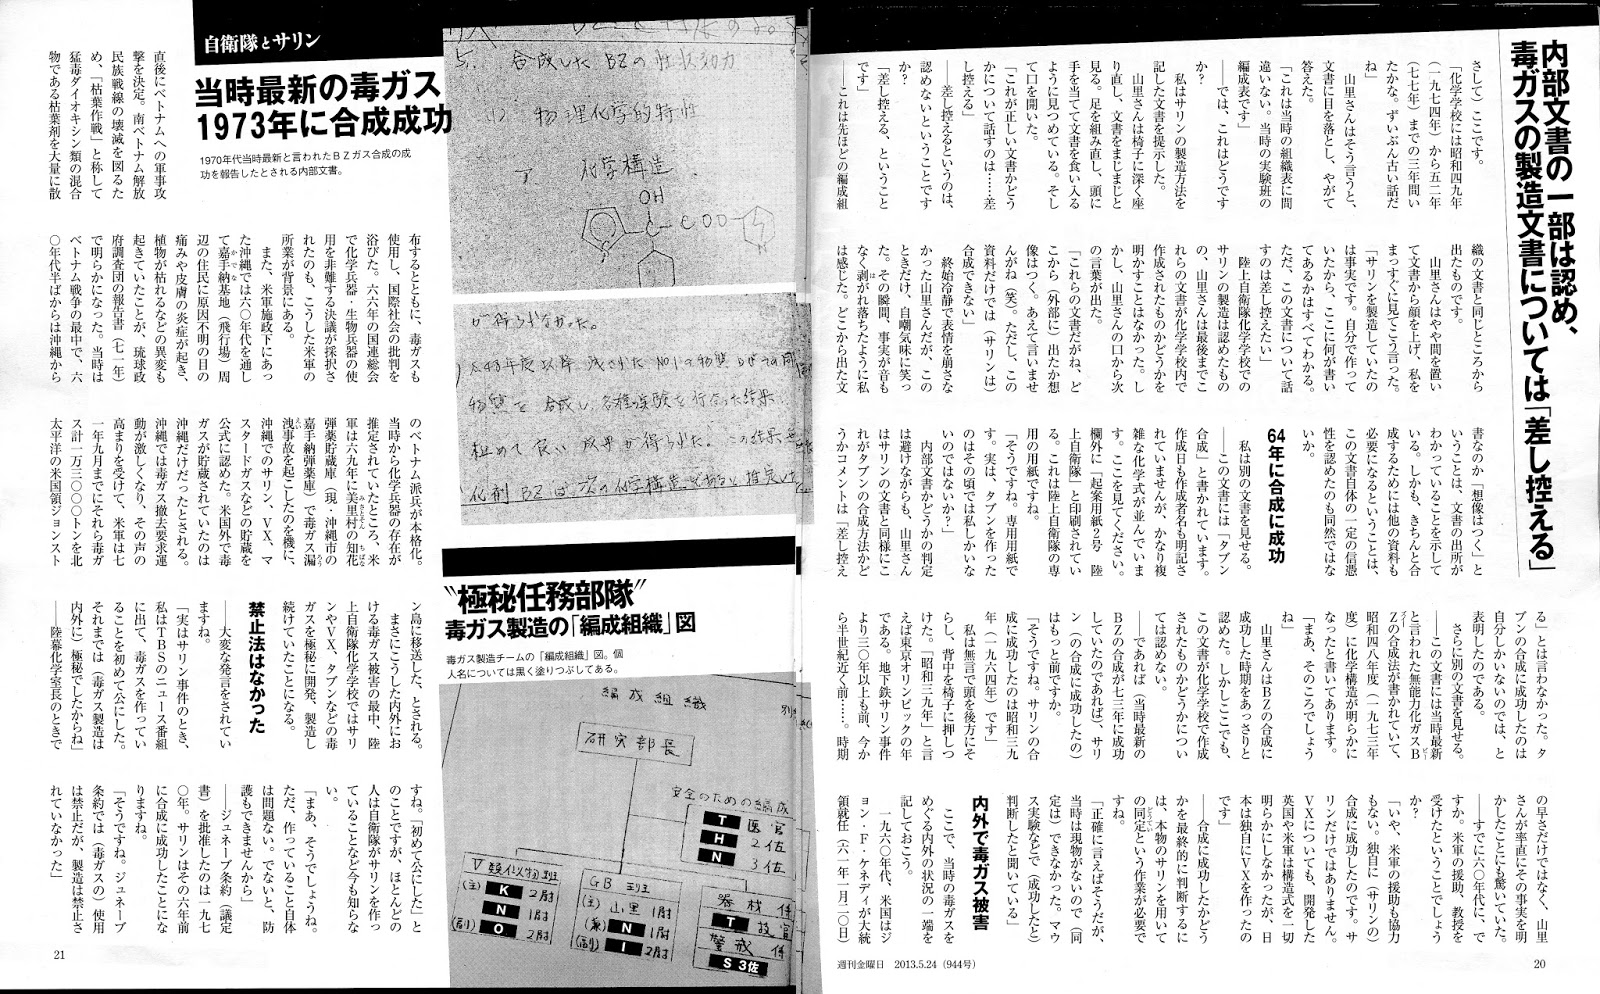 内部文書の一部は認め、
毒ガスの製造文書については「差し控える」
さして）ここです。
「化学学校には昭和四九年
（一九七四年）から五二年
（七七年）までの三年間い
たかな。ずいぶん古い話だ
ね」
山里さんはそう言うと、
文書に目を落とし、やがて
答えた。
「これは当時の組織表に間
違いない。当時の実験班の
編成表です」
――では、これはどうです
か？
私はサリンの製造方法を
記した文書を提示した。
山里さんは椅子に深く座
り直し、文書をまじまじと
見る。足を組み直し、頭に
手を当てて文書を食い入る
ように見つめている。そし
て口を開いた。
「これが正しい文書かどう
かについて話すのは……差
し控える」
――差し控えるというのは、
認めないということです
か？
「差し控える、ということ
です」
――これは先ほどの編成組
織の文書と同じところから
出たものです。
山里さんはやや間を置い
て文書から顔を上げ、私を
まっすぐに見てこう言った。
「サリンを製造していたの
は事実です。自分で作って
いたから、ここに何が書い
てあるかはすべてわかる。
ただ、この文書について話
すのは差し控えたい」
陸上自衛隊化学学校での
サリンの製造は認めたもの
の、山里さんは最後までこ
れらの文書が化学学校内で
作成されたものかどうかを
明かすことはなかった。し
かし、山里さんの口から次
の言葉が出た。
「これらの文書だがね、ど
こから（外部に）出たか想
像はつく。あえて言いませ
んがね（笑）。ただし、この
資料だけでは（サリンは）
合成できない」
終始冷静で表情を崩さな
かった山里さんだが、この
ときだけ、自嘲気味に笑っ
た。その瞬間、事実が音も
なく剥がれ落ちたように私
は感じた。どこから出た文
書なのか「想像はつく」と
いうことは、文書の出所が
わかっていることを示して
いる。しかも、きちんと合
成するためには他の資料も
必要になるということは、
この文書自体の一定の信憑
性を認めたのも同然ではな
いか。
64年に合成に成功
私は別の文書を見せる。
――この文書には「タブン
合成」と書かれています。
作成日も作成者名も明記さ
れていませんが、かなり複
雑な化学式が並んでいま
す。ここを見てください。
欄外に「起案用紙２号　陸
上自衛隊」と印刷されてい
る。これは陸上自衛隊の専
用の用紙ですね。
「そうですね。専用用紙で
す。実は、タブンを作った
のはその頃では私しかいな
いのではないか？」
内部文書かどうかの判定
は避けながらも、山里さん
はサリンの文書と同様にこ
れがタブンの合成方法かど
うかコメントは「差し控え
る」とは言わなかった。タ
ブンの合成に成功したのは
自分しかいないのでは、と
表明したのである。
さらに別の文書を見せる。
――この文書には当時最新
と言われた無能力化ガスＢ
Ｚの合成法が書かれていて、
昭和四八年度（一九七三年
度）に化学構造が明らかに
なったと書いてあります。
「まあ、そのころでしょう
ね」
山里さんはＢＺの合成に
成功した時期をあっさりと
認めた。しかしここでも、
この文書が化学学校で作成
されたものかどうかについ
ては認めない。
――であれば（当時最新の
ＢＺの合成が七三年に成功
していたのであれば）、サリ
ン（の合成に成功したの）
はもっと前ですか。
「そうですね。サリンの合
成に成功したのは昭和三九
年（一九六四年）です」
私は無言で頭を後方にそ
らし、背中を椅子に押しつ
けた。「昭和三九年」と言
えば東京オリンピックの年
である。地下鉄サリン事件
より三〇年以上も前、今か
ら半世紀近く前……。時期
の早さだけではなく、山里
さんが率直にその事実を明
かしたことにも驚いていた。
――すでに六〇年代に、で
すか。米軍の援助、教授を
受けたということでしょう
か？
「いや、米軍の援助も協力
もない。独自に（サリンの）
合成に成功したのです。サ
リンだけではありません。
ＶＸについても、開発した
英国や米軍は構造式を一切
明らかにしなかったが、日
本は独自にＶＸを作ったの
です」
――合成に成功したかどう
かを最終的に判断するに
は、本物のサリンを用いて
の同定という作業が必要で
すね。
「正確に言えばそうだが、
当時は現物がないので（同
定は）できなかった。マウ
ス実験などで（成功したと）
判断したと聞いている」
内外で毒ガス被害
ここで、当時の毒ガスを
めぐる内外の状況の一端を
記しておこう。
一九六〇年代、米国はジ
ョン・Ｆ・ケネディが大統
領就任（六一年一月二〇日）
週刊金曜日　2013.5.24（944号）
20
自衛隊とサリン
当時最新の毒ガス
1973年に合成成功
1970年代当時最新と言われたＢＺガス合成の成
功を報告したとされる内部文書。
5. 合成したBZの性状効力
物理化学的特性
ア 化学構造
OH
C
COO
が得られなかった。
極めて良い成果が得られた。この結果
化剤BZは次の化学構造
直後にベトナムへの軍事攻
撃を決定。南ベトナム解放
民族戦線の壊滅を図るた
め、「枯葉作戦」と称して
猛毒ダイオキシン類の混合
物である枯葉剤を大量に散
布するとともに、毒ガスも
使用し、国際社会の批判を
浴びた。六六年の国連総会
で化学兵器・生物兵器の使
用を非難する決議が採択さ
れたのも、こうした米軍の
所業が背景にある。
また、米軍施政下にあっ
た沖縄では六〇年代を通し
て嘉手納基地（飛行場）周
辺の住民に原因不明の目の
痛みや皮膚の炎症が起き、
植物が枯れるなどの異変も
起きていたことが、琉球政
府調査団の報告書（七一年）
で明らかになった。当時は
ベトナム戦争の最中で、六
〇年代半ばからは沖縄から
のベトナム派兵が本格化。
当時から化学兵器の存在が
推定されていたところ、米
軍は六九年に美里村の知花
弾薬貯蔵庫（現・沖縄市の
嘉手納弾薬庫）で毒ガス漏
洩事故を起こしたのを機に、
沖縄でのサリン、ＶＸ、マ
スタードガスなどの貯蔵を
公式に認めた。米国外で毒
ガスが貯蔵されていたのは
沖縄だけだったとされる。
沖縄では毒ガス撤去要求運
動が激しくなり、その声の
高まりを受けて、米軍は七
一年九月までにそれら毒ガ
ス計一万三〇〇〇トンを北
太平洋の米国領ジョンスト
ン島に移送した、とされる。
まさにこうした内外にお
ける毒ガス被害の最中、陸
上自衛隊化学学校ではサリ
ンやＶＸ、タブンなどの毒
ガスを極秘に開発、製造し
続けていたことになる。
禁止法はなかった
――大変な発言をされてい
ますね。
「実はサリン事件のとき、
私はＴＢＳのニュース番組
に出て、毒ガスを作ってい
ることを初めて公にした。
それまでは（毒ガス製造は
内外に）極秘でしたからね」
――陸幕化学室長のときで
すね。「初めて公にした」と
のことですが、ほとんどの
人は自衛隊がサリンを作っ
ていることなど今も知らな
い。
「まあ、そうでしょうね。
ただ、作っていること自体
は問題ない。でないと、防
護もできませんから」
――ジュネーブ条約（議定
書）を批准したのは一九七
〇年。サリンはその六年前
に合成に成功したことにな
りますね。
「そうですね。ジュネーブ
条約では（毒ガスの）使用
は禁止だが、製造は禁止さ
れていなかった」
“極秘任務部隊”
毒ガス製造の「編成組織」図
毒ガス製造チームの「編成組織」図。個
人名については黒く塗りつぶしてある。
編成組織
研究部長
安全のための編成
T 医官
H 2佐
N 3佐
V類似物班
(主) K 2尉
N 1尉
(副) O 2尉
GB班
(主) 山里 1尉
(兼) N 1尉
(副) I 2尉
器材係
T 技官
警戒係
S 3佐
21